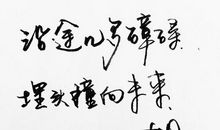 沿途几多障碍
埋头撞向未来